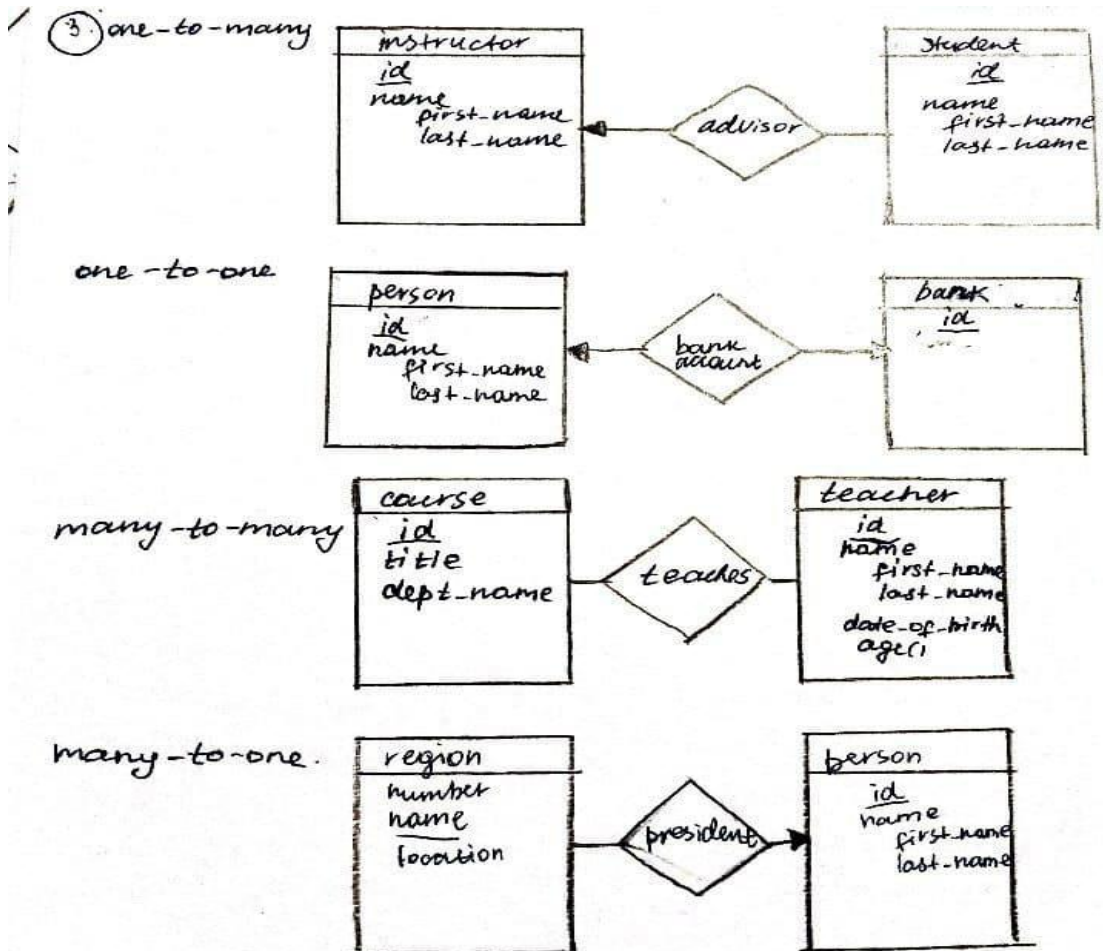 3. one-to-many
instructor
id
name
first_name
last_name
advisor
student
id
name
first_name
last_name
one-to-one
person
id
name
first_name
last_name
bank
account
bank
id
many-to-many
course
id
title
dept_name
teaches
teacher
id
name
first_name
last_name
date_of_birth
age()
many-to-one.
region
number
name
location
president
person
id
name
first_name
last_name